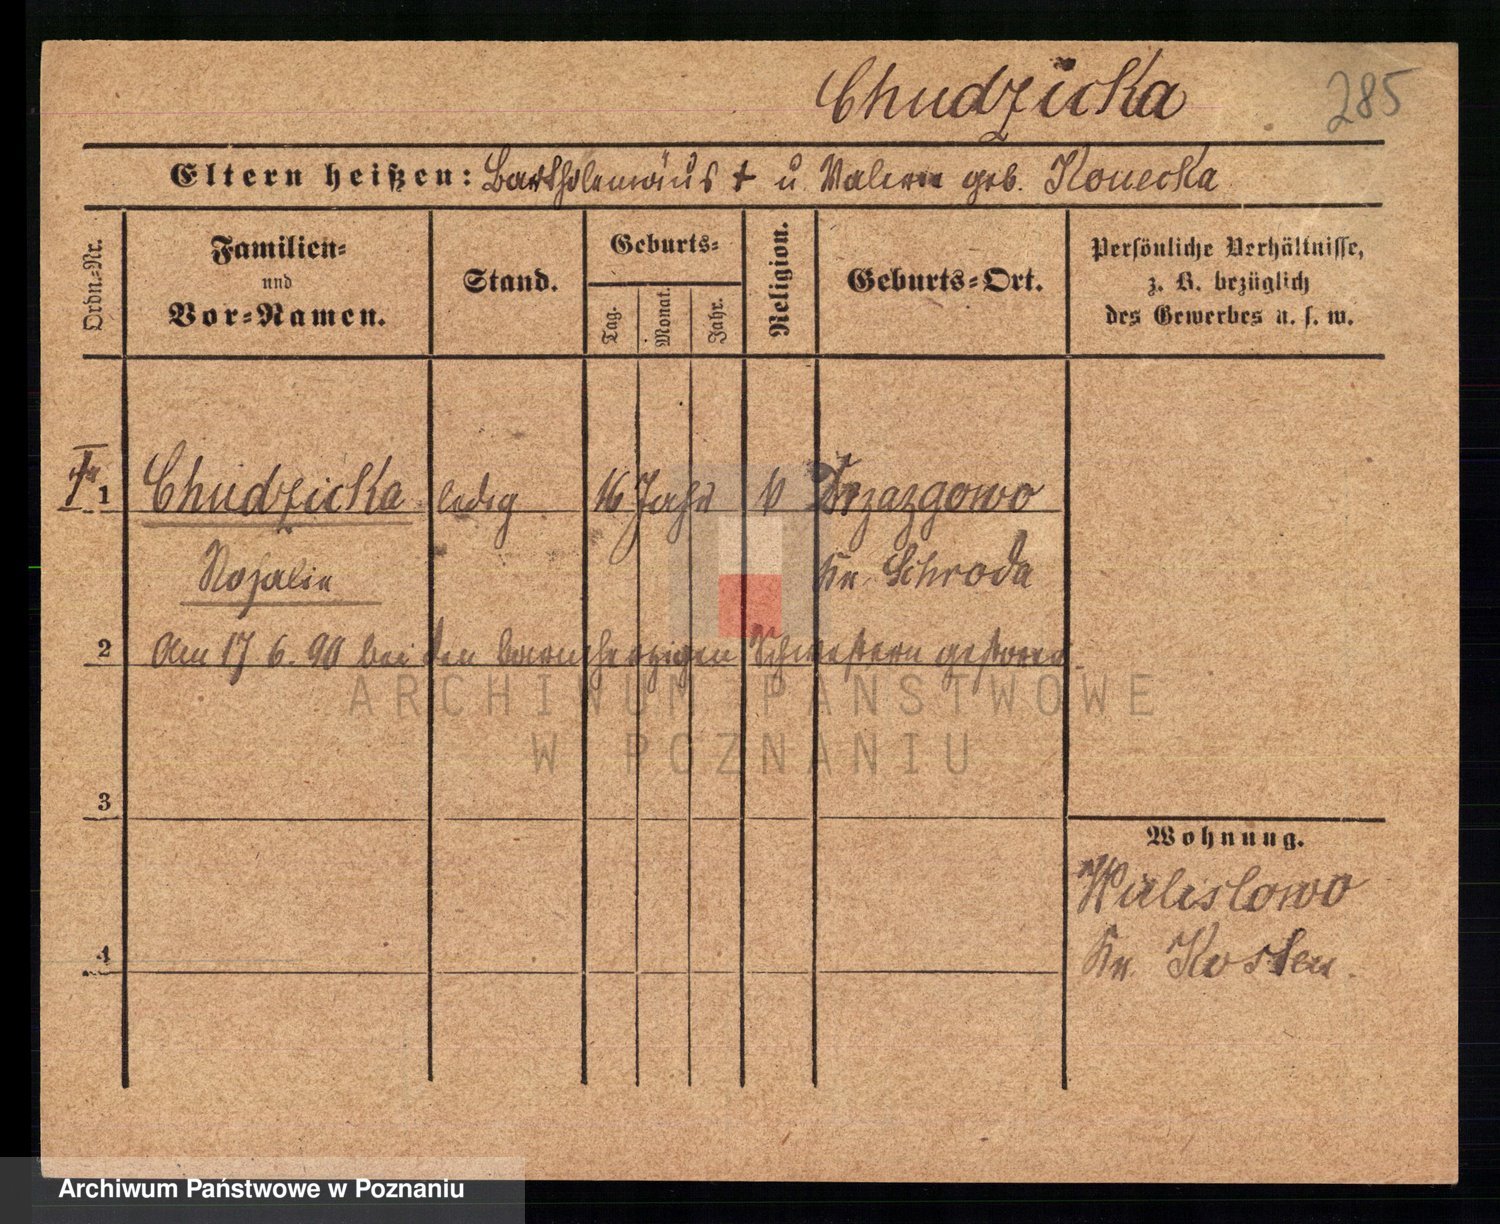 Chudzicka 285
Eltern heißen: Bartholemäus † u Valerie geb. Konecka
Ordn.-Nr.
Familien- und Vor-Namen.
Stand.
Geburts-
Tag.
Monat.
Jahr.
Religion.
Geburts-Ort.
Persönliche Verhältnisse,
z. B. bezüglich
des Gewerbes u. s. w.
1 Chudzicka ledig 16 Jahr Drzazgowo
Rosalie Kr. Schroda
2 Am 17 6. 90 bei den barmherzigen Schwestern gestorb.
3
Wohnung.
Kr. Kosten.
4
ARCHIWUM PAŃSTWOWE
W POZNANIU
Archiwum Państwowe w Poznaniu